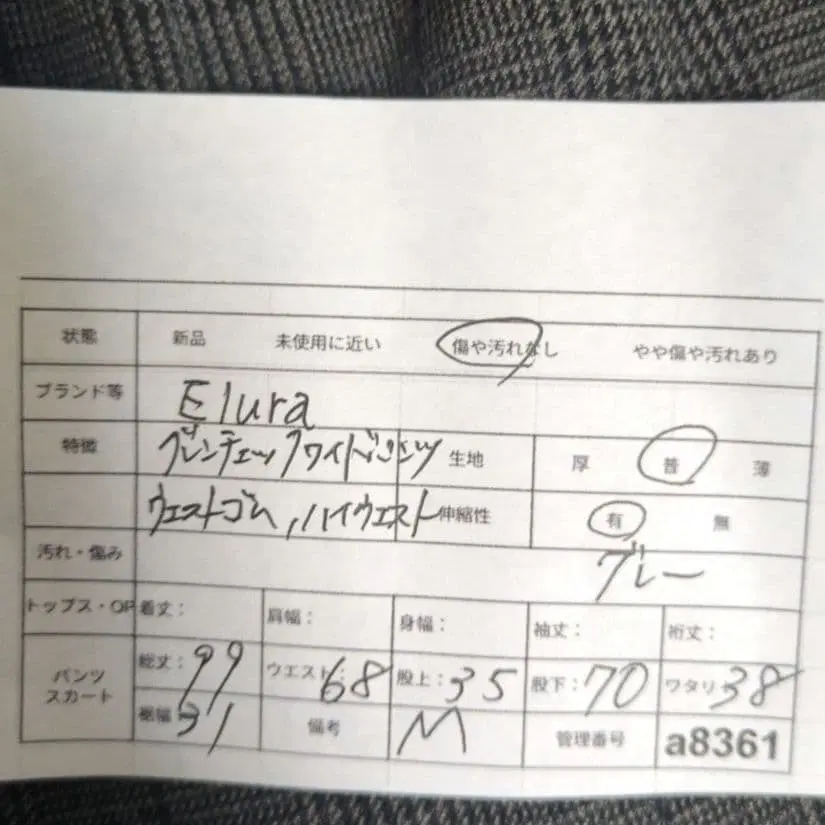 状態 新品 未使用に近い 傷や汚れなし やや傷や汚れあり
ブランド等 Elura
特徴 グレンチェックワイドパンツ 生地 厚 普 薄
ウエストゴム,ハイウエスト 伸縮性 有 無
汚れ・傷み グレー
トップス・OP 着丈: 肩幅: 身幅: 袖丈: 裄丈:
パンツ スカート 総丈:99 ウエスト:68 股上:35 股下:70 ワタリ:38
裾幅:31 備考 M 管理番号 a8361